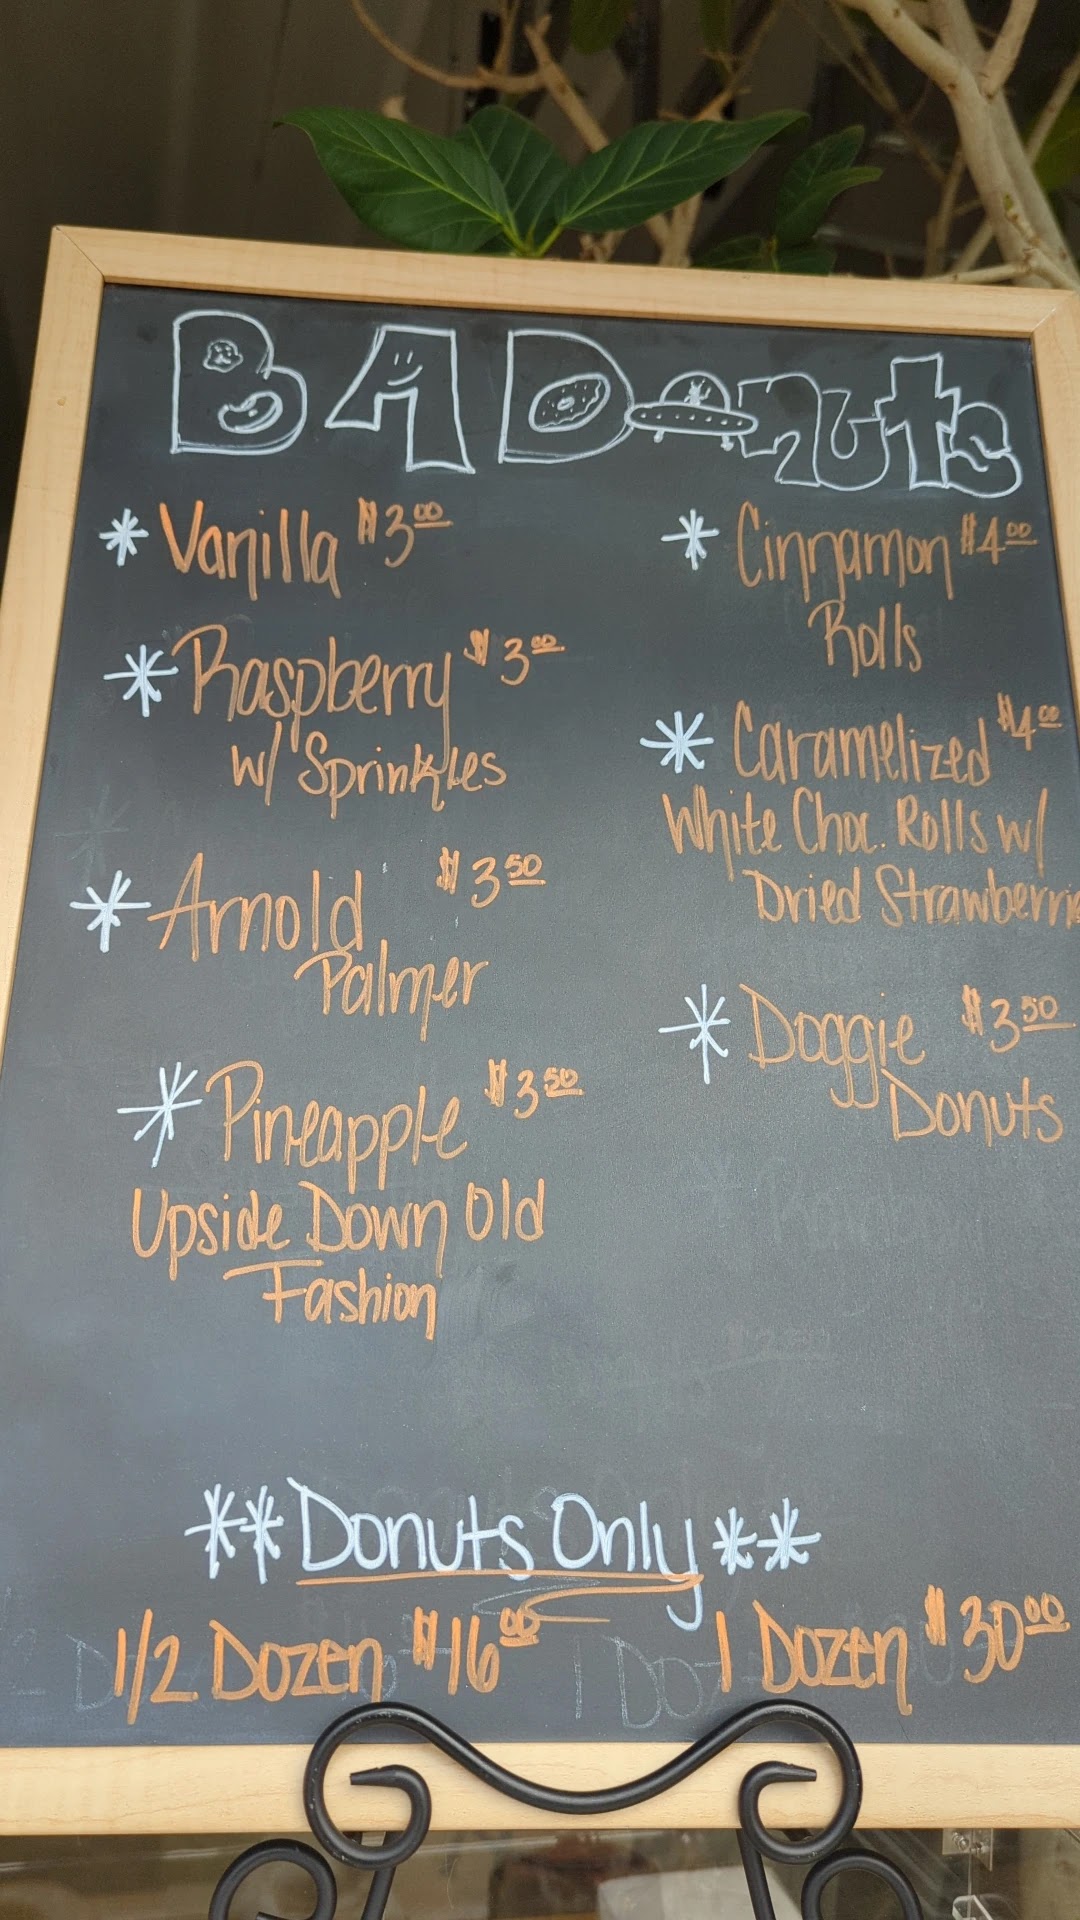 BADonuts
* Vanilla $3.00
* Raspberry $3.00
w/ Sprinkles
* Arnold $3.50
Palmer
* Pineapple $3.50
Upside Down Old
Fashion
* Cinnamon $4.00
Rolls
* Caramelized $4.00
White Choc. Rolls w/
Dried Strawberri
* Doggie $3.50
Donuts
** Donuts Only **
1/2 Dozen $16.00
1 Dozen $30.00